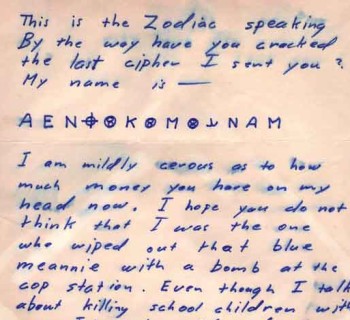 This is the Zodiac speaking
By the way have you cracked
the last cipher I sent you ?
My name is —
A E N ⌖ ⊗ K ⊗ M ⊗ ⅃ N A M
I am mildly cerous as to how
much money you have on my
head now. I hope you do not
think that I was the one
who wiped out that blue
meannie with a bomb at the
cop station. Even though I talk
about killing school children with